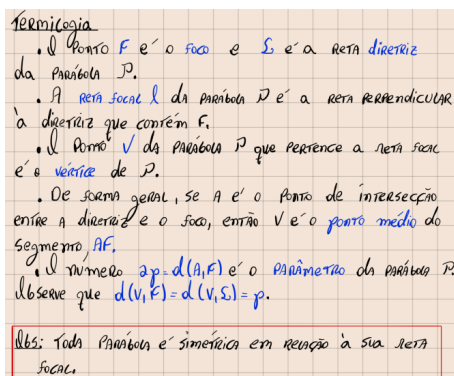 Termilogia
. O Ponto F é o foco e L é a reta diretriz
da parábola P.
. A reta focal l da parábola P é a reta perpendicular
à diretriz que contém F.
. O ponto V da parábola P que pertence a reta focal
é o vértice de P.
. De forma geral, se A é o ponto de intersecção
entre a diretriz e o foco, então V é o ponto médio do
segmento, AF.
. O número 2p = d(A,F) é o parâmetro da parábola P.
Observe que d(V,F) = d(V,L) = p.
Obs: Toda parábola é simétrica em relação à sua reta
focal.